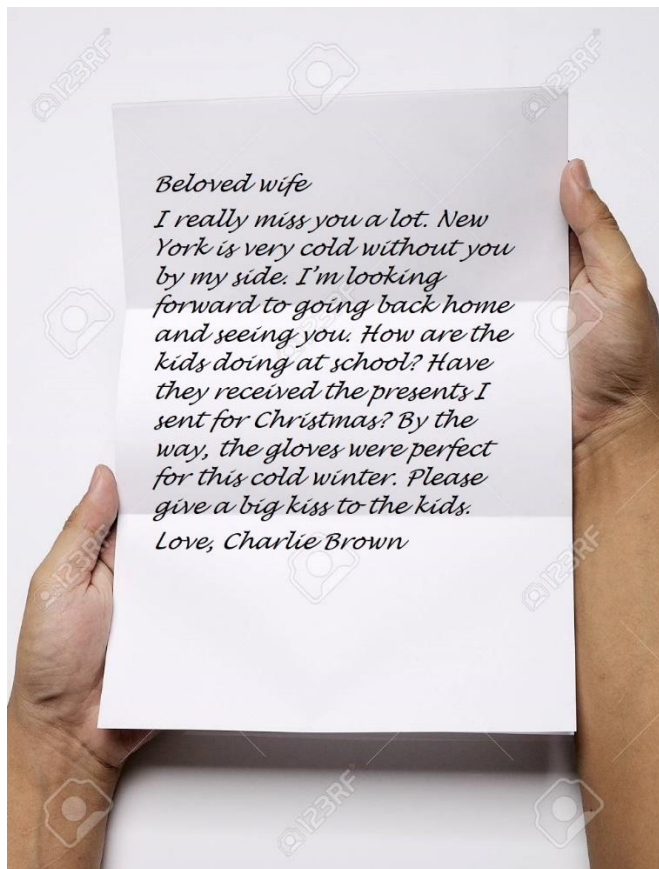 Beloved wife
I really miss you a lot. New
York is very cold without you
by my side. I'm looking
forward to going back home
and seeing you. How are the
kids doing at school? Have
they received the presents I
sent for Christmas? By the
way, the gloves were perfect
for this cold winter. Please
give a big kiss to the kids.
Love, Charlie Brown
123RF
123RF
123RF
123RF
123RF
123RF